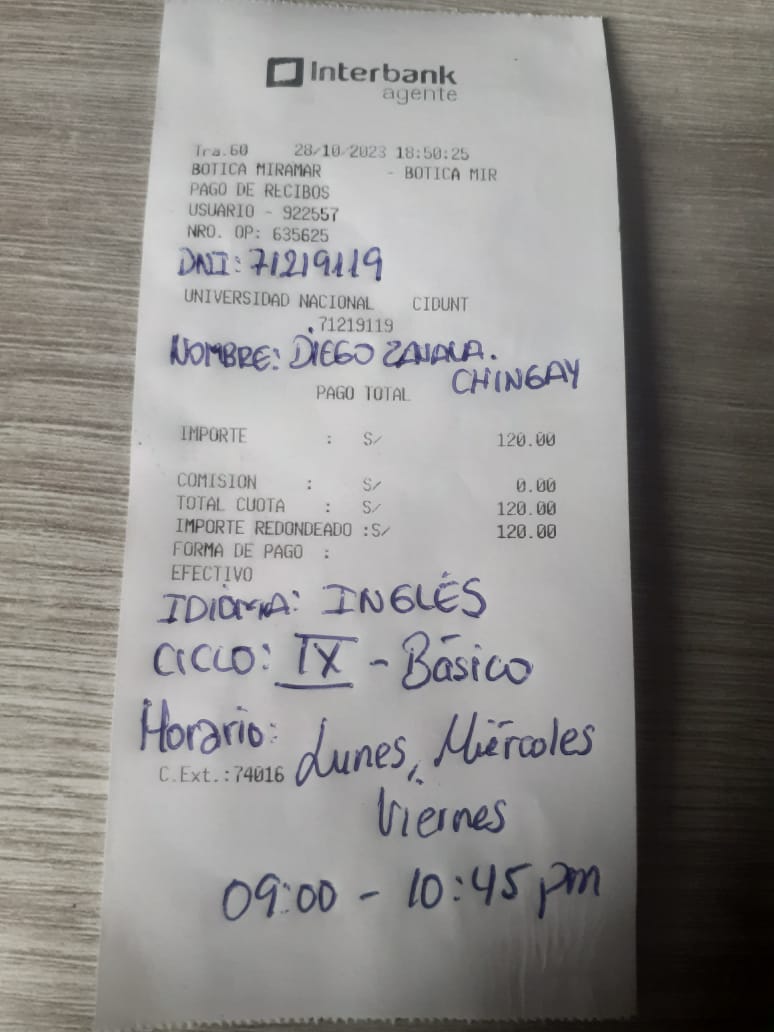 Interbank
agente
Tra.60 28/10/2023 18:50:25
BOTICA MIRAMAR - BOTICA MIR
PAGO DE RECIBOS
USUARIO - 922557
NRO. OP: 635625
DNI: 71219119
UNIVERSIDAD NACIONAL CIDUNT
71219119
NOMBRE: DIEGO ZAVALA.
CHINGAY
PAGO TOTAL
IMPORTE : S/ 120.00
COMISION : S/ 0.00
TOTAL CUOTA : S/ 120.00
IMPORTE REDONDEADO :S/ 120.00
FORMA DE PAGO :
EFECTIVO
IDIOMA: INGLÉS
CICLO: IX - Básico
Horario: Lunes, Miércoles
C.Ext.:74016
Viernes
09:00 - 10:45 pm